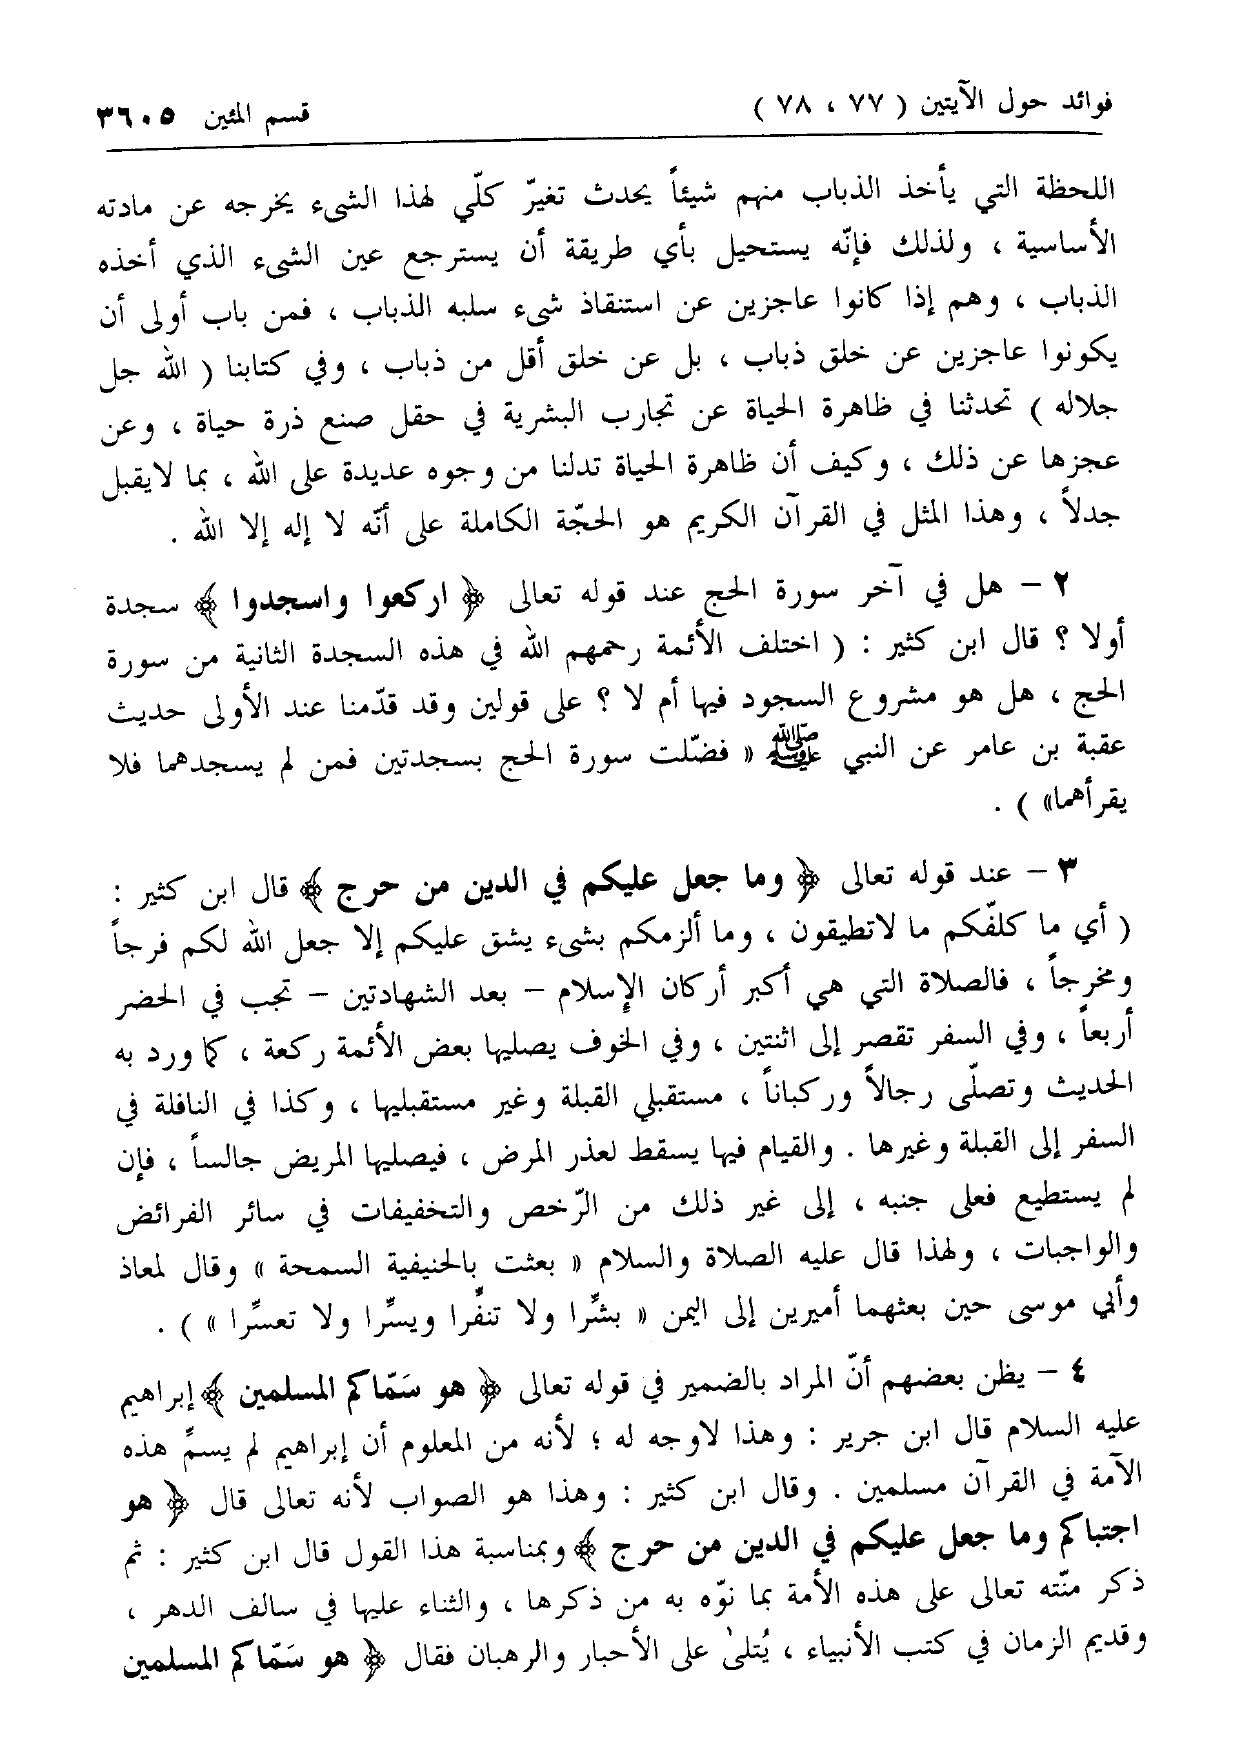 فوائد حول الآيتين ( ٧٧ ، ٧٨ )
قسم المئين ٣٦٠٥
اللحظة التي يأخذ الذباب منهم شيئاً يحدث تغيّر كلّي لهذا الشيء يخرجه عن مادته
الأساسية ، ولذلك فإنّه يستحيل بأي طريقة أن يسترجع عين الشيء الذي أخذه
الذباب ، وهم إذا كانوا عاجزين عن استنقاذ شيء سلبه الذباب ، فمن باب أولى أن
يكونوا عاجزين عن خلق ذباب ، بل عن خلق أقل من ذباب ، وفي كتابنا ( الله جل
جلاله ) تحدثنا في ظاهرة الحياة عن تجارب البشرية في حقل صنع ذرة حياة ، وعن
عجزها عن ذلك ، وكيف أن ظاهرة الحياة تدلنا من وجوه عديدة على الله ، بما لايقبل
جدلاً ، وهذا المثل في القرآن الكريم هو الحجّة الكاملة على أنّه لا إله إلا الله .
٢ – هل في آخر سورة الحج عند قوله تعالى ﴿ اركعوا واسجدوا ﴾ سجدة
أولا ؟ قال ابن كثير : ( اختلف الأئمة رحمهم الله في هذه السجدة الثانية من سورة
الحج ، هل هو مشروع السجود فيها أم لا ؟ على قولين وقد قدّمنا عند الأولى حديث
عقبة بن عامر عن النبي ﷺ « فضّلت سورة الحج بسجدتين فمن لم يسجدهما فلا
يقرأهما» ) .
٣ – عند قوله تعالى ﴿ وما جعل عليكم في الدين من حرج ﴾ قال ابن كثير :
( أي ما كلفّكم ما لاتطيقون ، وما ألزمكم بشيء يشق عليكم إلا جعل الله لكم فرجاً
ومخرجاً ، فالصلاة التي هي أكبر أركان الإسلام – بعد الشهادتين – تجب في الحضر
أربعاً ، وفي السفر تقصر إلى اثنتين ، وفي الخوف يصليها بعض الأئمة ركعة ، كما ورد به
الحديث وتصلّى رجالاً وركباناً ، مستقبلي القبلة وغير مستقبليها ، وكذا في النافلة في
السفر إلى القبلة وغيرها . والقيام فيها يسقط لعذر المرض ، فيصليها المريض جالساً ، فإن
لم يستطيع فعلى جنبه ، إلى غير ذلك من الرّخص والتخفيفات في سائر الفرائض
والواجبات ، ولهذا قال عليه الصلاة والسلام « بعثت بالحنيفية السمحة » وقال لمعاذ
وأبي موسى حين بعثهما أميرين إلى اليمن « بشِّرا ولا تنفِّرا ويسِّرا ولا تعسِّرا » ) .
٤ – يظن بعضهم أنّ المراد بالضمير في قوله تعالى ﴿ هو سَمّاكم المسلمين ﴾ إبراهيم
عليه السلام قال ابن جرير : وهذا لاوجه له ؛ لأنه من المعلوم أن إبراهيم لم يسمِّ هذه
الآمة في القرآن مسلمين . وقال ابن كثير : وهذا هو الصواب لأنه تعالى قال ﴿ هو
اجتباكم وما جعل عليكم في الدين من حرج ﴾ وبمناسبة هذا القول قال ابن كثير : ثم
ذكر منّته تعالى على هذه الأمة بما نوّه به من ذكرها ، والثناء عليها في سالف الدهر ،
وقديم الزمان في كتب الأنبياء ، يُتلىٰ على الأحبار والرهبان فقال ﴿ هو سَمّاكم المسلمين